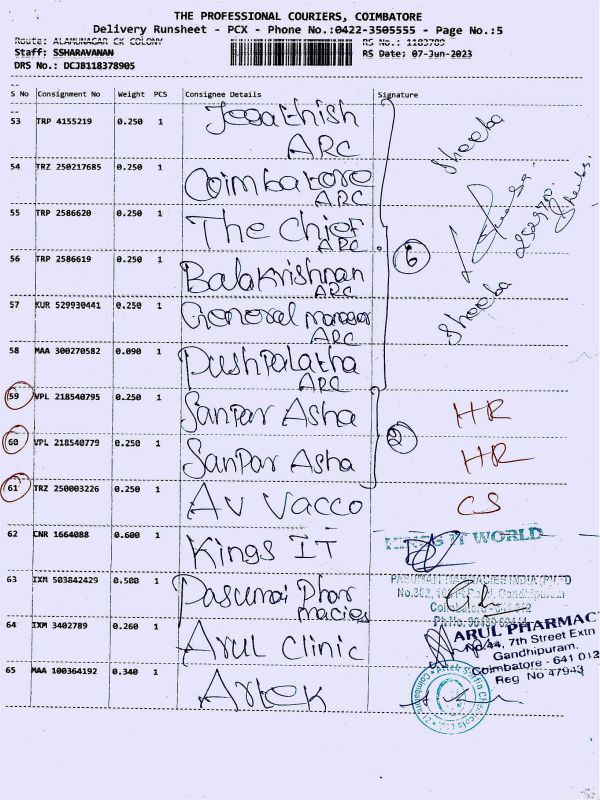 THE PROFESSIONAL COURIERS, COIMBATORE
Delivery Runsheet - PCX - Phone No.:0422-3505555 - Page No.:5
Route: ALAMUNAGAR CK COLONY
RS No.: 1183789
Staff: SSHARAVANAN
RS Date: 07-Jun-2023
DRS No.: DCJB118378905
S No Consignment No Weight PCS Consignee Details Signature
53 TRP 4155219 0.250 1 Jegathish
ARC
Sheeba
54 TRZ 250217685 0.250 1 Coimbatore
ARC
55 TRP 2586620 0.250 1 The Chief
ARC
Sheeba
6
56 TRP 2586619 0.250 1 Balakrishnan
ARC
57 KUR 529930441 0.250 1 General manager
ARC
Sheeba
58 MAA 300270582 0.090 1 Pushpalatha
ARC
59 VPL 218540795 0.250 1 Sanpar Asha HR
2
60 VPL 218540779 0.250 1 Sanpar Asha HR
61 TRZ 250003226 0.250 1 AV Vacco CS
62 CNR 1664088 0.600 1 Kings IT
KINGS IT WORLD
63 IXM 503842429 0.500 1 Pasumai Phar
macies
Gandhipuram
Coimbatore - 641 012
64 IXM 3402789 0.260 1 Arul Clinic
ARUL PHARMAC
No.44, 7th Street Extn
Gandhipuram.
Coimbatore - 641 012
Reg No 47943
65 MAA 100364192 0.340 1 Artek